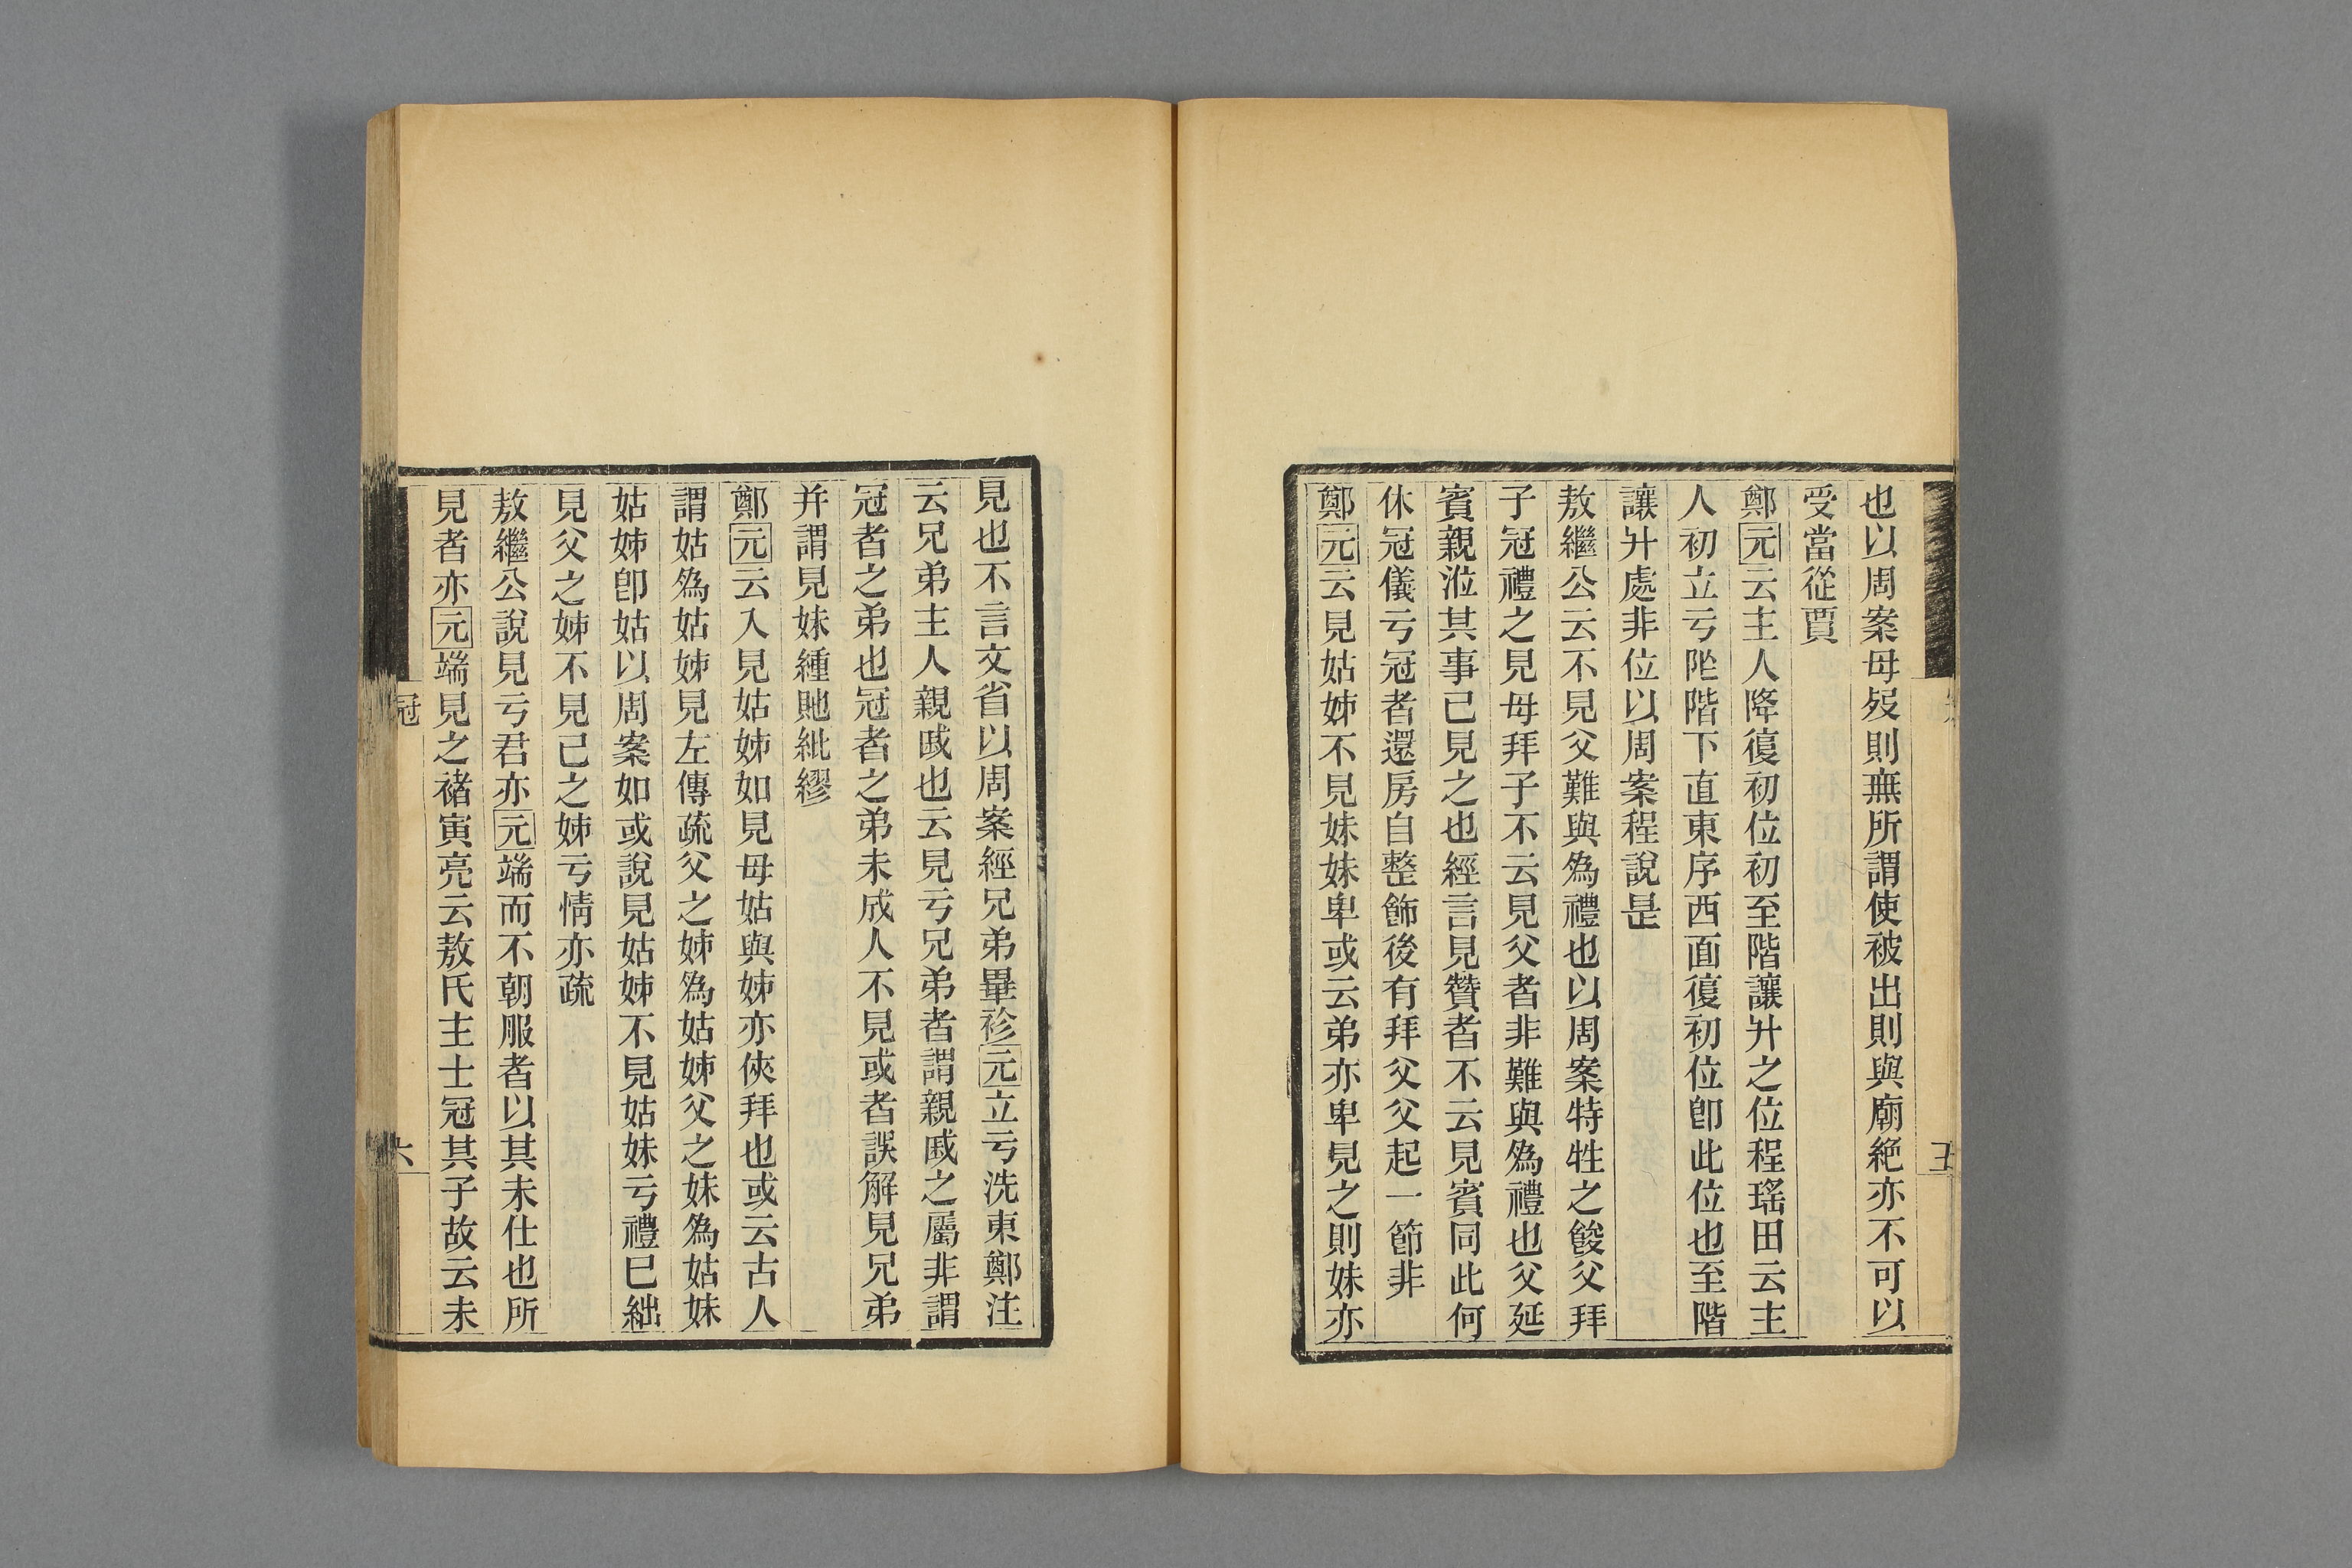 也以周案母歿則無所謂使被出則與廟絶亦不可以
受當從賈
鄭元云主人降復初位初至階讓升之位程瑤田云主
人初立亏阼階下直東序西面復初位卽此位也至階
讓升處非位以周案程說是
敖繼公云不見父難與爲禮也以周案特牲之餕父拜
子冠禮之見母拜子不云見父者非難與爲禮也父延
賓親涖其事已見之也經言見贊者不云見賓同此何
休冠儀亏冠者還房自整飾後有拜父父起一節非
鄭元云見姑姊不見妹妹卑或云弟亦卑見之則妹亦
五
見也不言文省以周案經兄弟畢袗元立亏洗東鄭注
云兄弟主人親戚也云見亏兄弟者謂親戚之屬非謂
冠者之弟也冠者之弟未成人不見或者誤解見兄弟
并謂見妹緟貤紕繆
鄭元云入見姑姊如見母姑與姊亦俠拜也或云古人
謂姑爲姑姊見左傳疏父之姊爲姑姊父之妹爲姑妹
姑姊卽姑以周案如或說見姑姊不見姑妹亏禮巳絀
見父之姊不見己之姊亏情亦疏
敖繼公說見亏君亦元端而不朝服者以其未仕也所
見者亦元端見之褚寅亮云敖氏主士冠其子故云未
冠
六